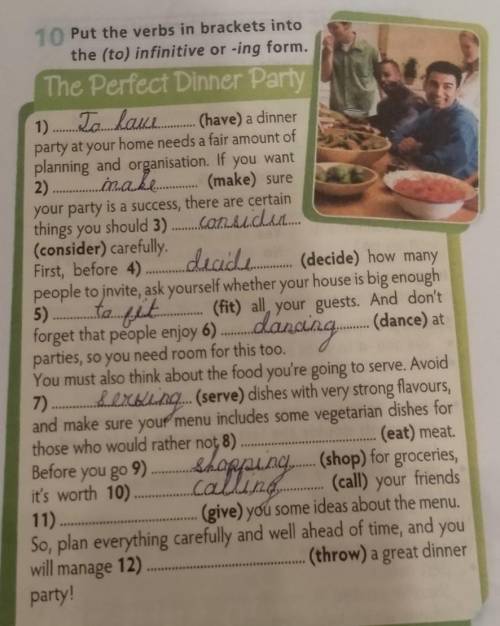 10 Put the verbs in brackets into
the (to) infinitive or -ing form.
The Perfect Dinner Party
1) ....To have.... (have) a dinner
party at your home needs a fair amount of
planning and organisation. If you want
2) ....make.... (make) sure
your party is a success, there are certain
things you should 3) ....consider....
(consider) carefully.
First, before 4) ....decide.... (decide) how many
people to invite, ask yourself whether your house is big enough
5) ....to fit.... (fit) all your guests. And don't
forget that people enjoy 6) ....dancing.... (dance) at
parties, so you need room for this too.
You must also think about the food you're going to serve. Avoid
7) ....serving.... (serve) dishes with very strong flavours,
and make sure your menu includes some vegetarian dishes for
those who would rather not 8) .................... (eat) meat.
Before you go 9) ....shopping.... (shop) for groceries,
it's worth 10) ....calling.... (call) your friends
11) .................... (give) you some ideas about the menu.
So, plan everything carefully and well ahead of time, and you
will manage 12) .................... (throw) a great dinner
party!